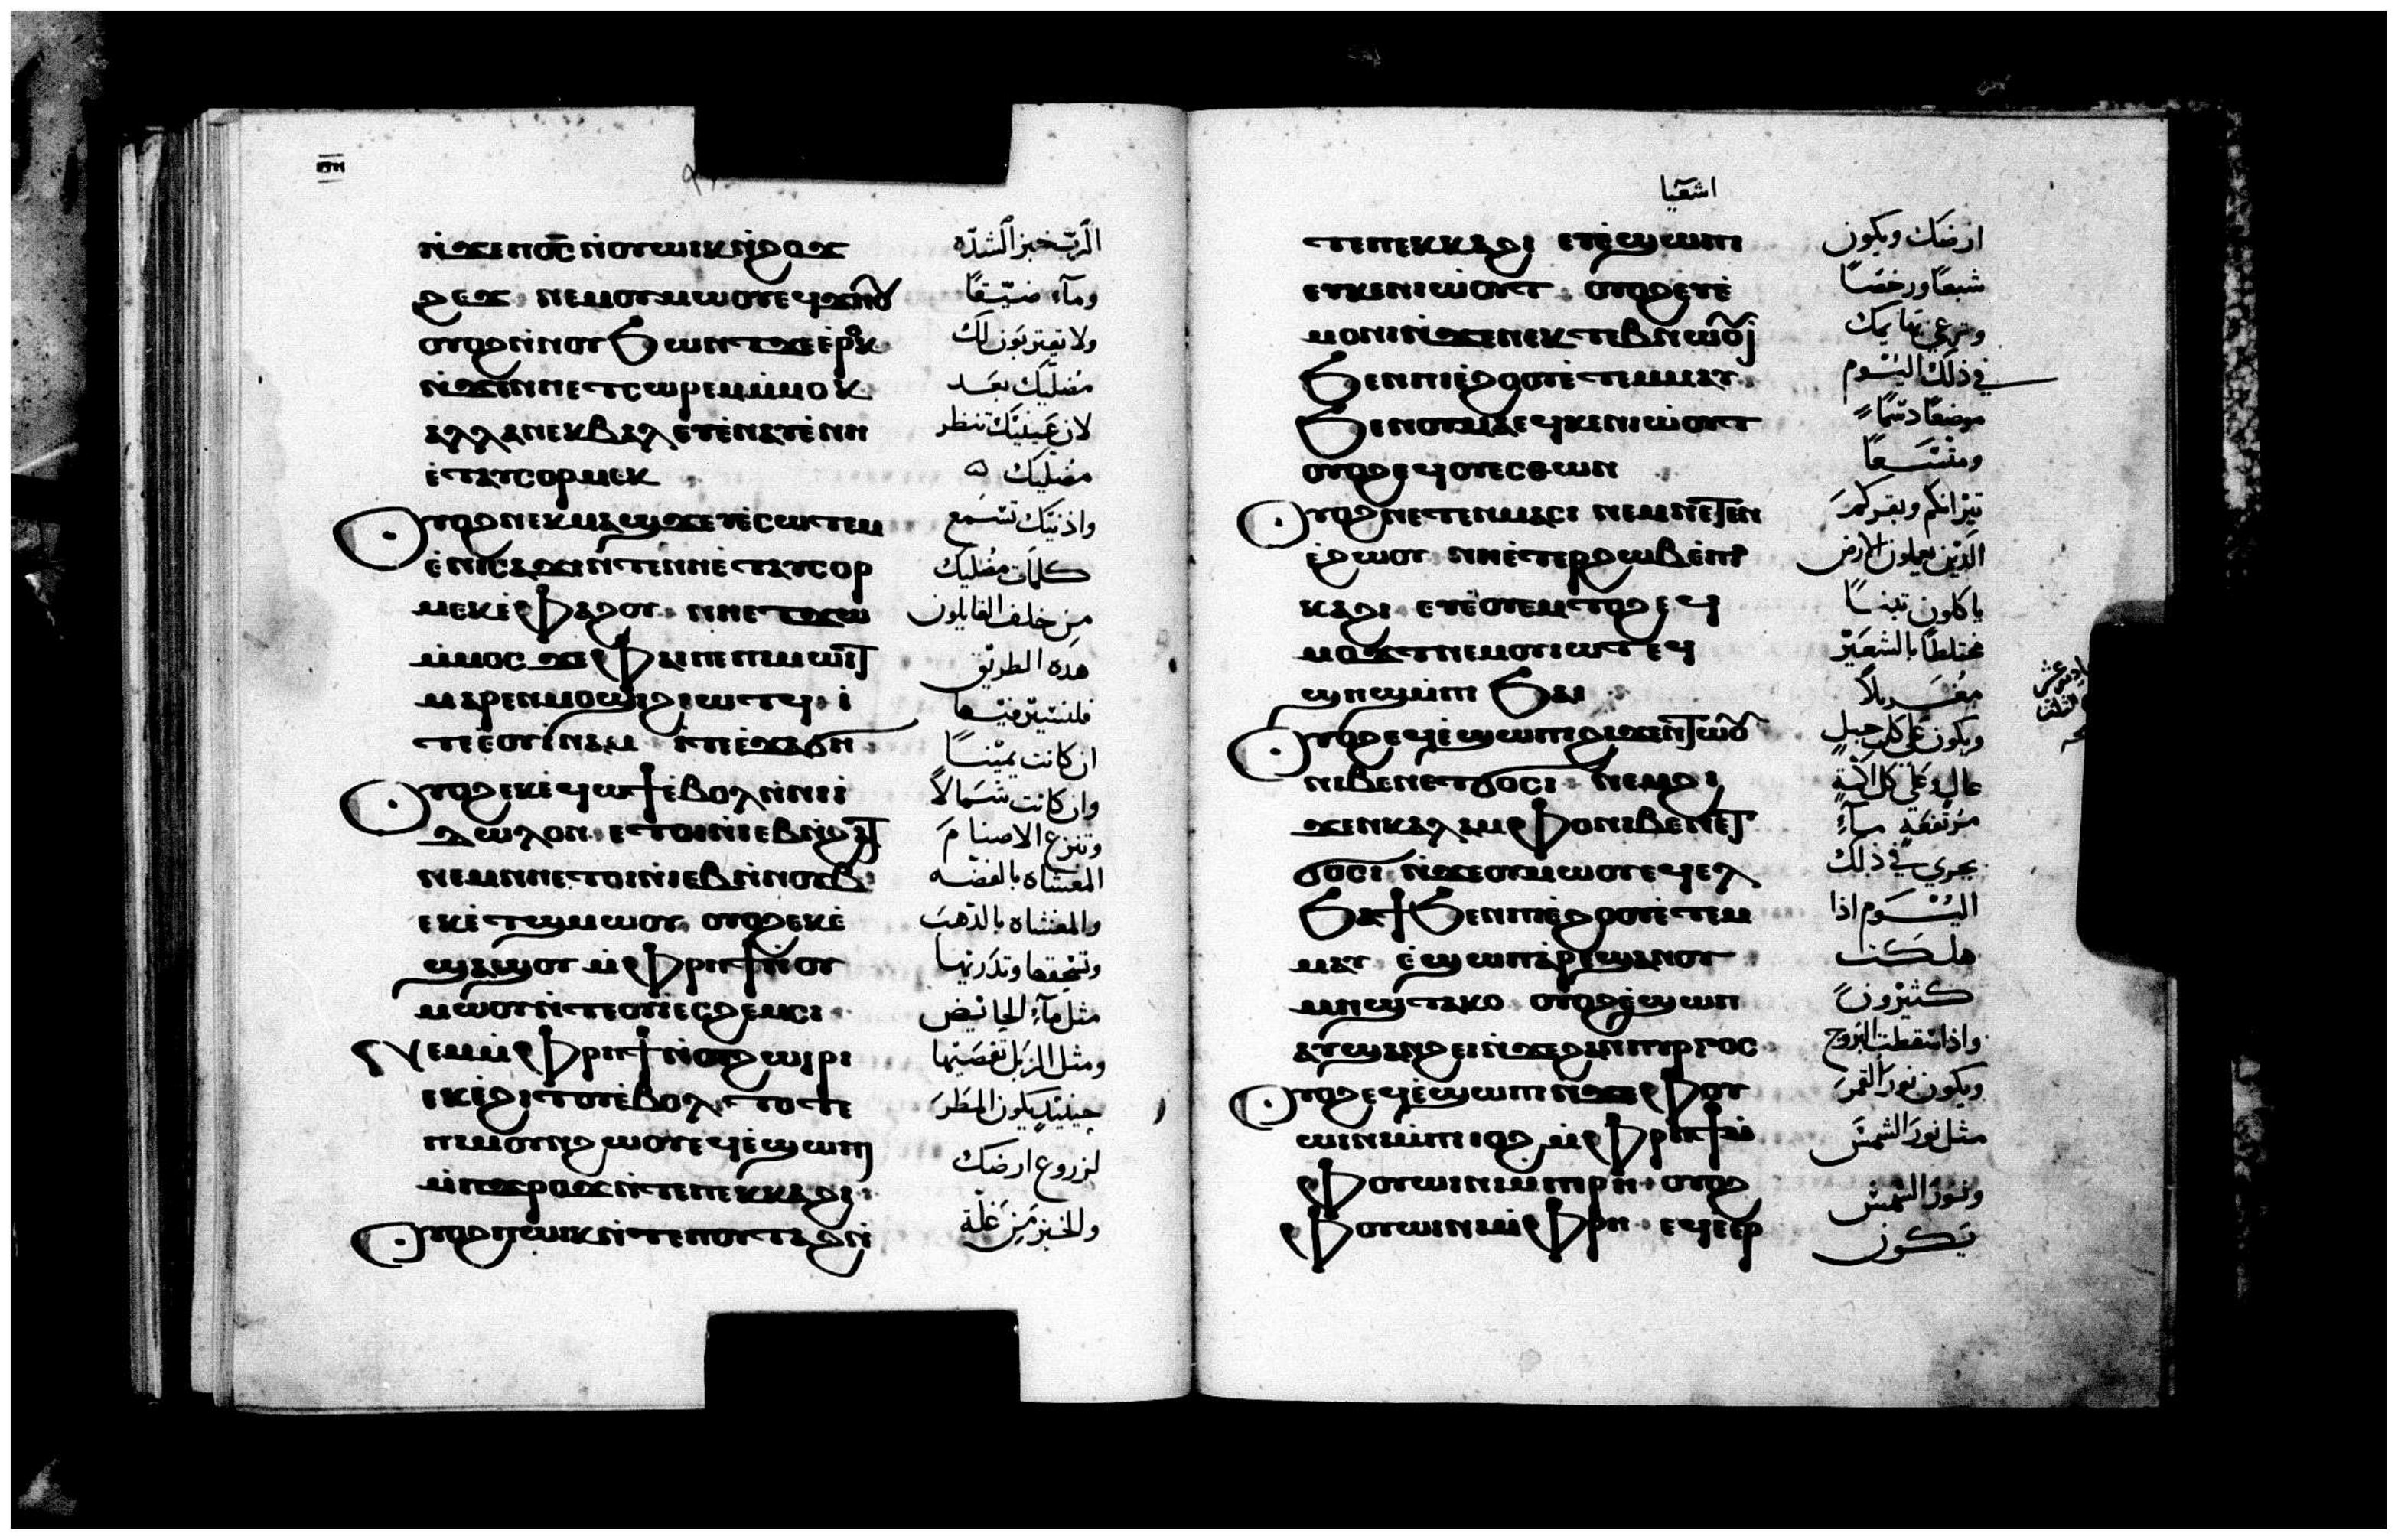 ⲛ̀ϫⲉⲡⲟ̅ⲥ̅ ⲛ̀ⲟⲩⲱⲓⲕ ⲛ̀ϩⲟϫ
ϩⲉϫ ⲛⲉⲙⲟⲩⲙⲱⲟⲩ ⲉϥϫⲏⲟⲩ
ⲟⲩⲟϩ ⲛ̀ⲛⲟⲩϧⲱⲛⲧ ϫⲉ ⲉ̀ⲣⲟⲕ
ⲛ̀ϫⲉⲛⲏⲉⲧⲥⲱⲣⲉⲙ ⲙ̀ⲙⲟⲕ
ⲁⲗⲗⲁ ⲛⲉⲕⲃⲁⲗ ⲉⲩⲉ̀ⲛⲁⲩ ⲉ̀ⲛⲏ
ⲉ̀ⲧⲁⲩⲥⲟⲣⲙⲉⲕ
ⲟⲩⲟϩ ⲛⲉⲕⲙⲁϣϫ ⲉⲩⲉ̀ⲥⲱⲧⲉⲙ
ⲉ̀ⲛⲓⲥⲁϫⲓ ⲛ̀ⲧⲉⲛⲏ ⲉ̀ⲧⲁⲩⲥⲟⲣ
ⲙⲉⲕ ⲉ̀ⲫⲁϩⲟⲩ ⲛⲏⲉⲧϫⲱ
ⲙ̀ⲙⲟⲥ ϫⲉ ⲫⲁⲓ ⲡⲉ ⲡⲓⲙⲱⲓⲧ
ⲙⲁⲣⲉⲛⲙⲟϣⲓ ϩⲓⲱⲧϥ ⲓ̀
ⲧⲉ ⲉ̀ⲟⲩⲓ̀ⲛⲁⲙ ⲓⲧⲉ ⲉ̀ϫⲁϭⲏ
ⲟⲩⲟϩ ⲉⲕⲉ̀ϥⲱϯ ⲉ̀ⲃⲟⲗ ⲛ̀ⲛⲓⲓ̀
ⲇⲱⲗⲟⲛ ⲉⲧⲟⲓ ⲛ̀ⲓⲉⲃ ⲛ̀ϩⲁⲧ
ⲛⲉⲙ ⲛⲏⲉⲧⲟⲓ ⲛ̀ⲓⲉⲃ ⲛ̀ⲛⲟⲩⲃ
ⲉⲕⲉ̀ⲧϣⲙⲱⲟⲩ ⲟⲩⲟϩ ⲉⲕⲉ̀
ϣⲁϣⲟⲩ ⲙ̀ⲫⲣⲏϯ ⲛ̀ⲟⲩ
ⲙⲱⲟⲩ ⲛ̀ⲧⲉ ⲟⲩⲉⲥϩⲉⲙⲥⲓ
ⲛⲉⲙ ⲙ̀ⲫⲣⲏϯ ⲛ̀ⲟⲩϩⲱⲓⲣⲓ
ⲉⲕⲉ̀ϩⲓⲧⲟⲩ ⲉ̀ⲃⲟⲗ ⲧⲟⲧⲉ
ⲡⲓⲙⲟⲩⲛϩⲱⲟⲩ ⲉϥⲉ̀ϣⲱⲡⲓ
ⲙ̀ⲡϫⲣⲟϫ ⲛ̀ⲧⲉ ⲡⲉⲕⲕⲁϩⲓ
ⲟⲩⲟϩ ⲡⲱⲓⲕ ⲛ̀ⲧⲉ ⲡⲟⲩⲧⲁϩ ⲛ̀
الرب خبز الشدّه
ومآء ضيّقًا
ولا يقتربون لك
مُضليك بعد
لان عينيك تنظر
مضليك
واذنيك تسمع
كلمات مضليك
من خلف القايلون
هده الطريق
فلنسير فيها
ان كانت يمينًا
وان كانت شمالاً
وتنزع الاصنام
المغشاه بالفضه
والمغشاه بالذهب
وتسحقها وتذريها
مثل مآء الحائيض
ومثل الزبل تقصيها
حينيد يكون المطر
لزروع ارضك
والخبز من غلّة
اشعيا
ⲧⲉ ⲡⲉⲕⲕⲁϩⲓ ⲉⲩⲉ̀ϣⲱⲡⲓ
ⲉⲩⲕⲉⲛⲓⲱⲟⲩⲧ ⲟⲩⲟϩ ⲉⲩⲉ̀
ⲙⲟⲛⲓ ⲛ̀ϫⲉⲛⲉⲕⲧⲉⲃⲛⲱⲟⲩⲓ
ϧⲉⲛ ⲡⲓⲉ̀ϩⲟⲟⲩ ⲉ̀ⲧⲉⲙⲙⲁⲩ
ϧⲉⲛ ⲟⲩⲙⲁ ⲉϥⲕⲉⲛⲓⲱⲟⲩⲧ
ⲟⲩⲟϩ ⲉϥⲟⲩⲉⲥⲑⲱⲛ
ⲟⲩⲟϩ ⲛⲉⲧⲉⲛⲙⲁⲥⲓ ⲛⲉⲙ ⲛⲉⲧⲉⲛ
ⲉ̀ϩⲱⲟⲩ ⲛⲏⲉ̀ⲧⲉⲣϩⲱⲃ ⲉ̀ⲡⲓ
ⲕⲁϩⲓ ⲉⲩⲉ̀ⲟⲩⲉⲙ ⲧⲟϩ ⲉϥ
ⲙⲟϫⲧ ⲛⲉⲙ ⲟⲩⲓⲱⲧ ⲉϥ
ϣⲏϣ ⲙ̀ⲡⲓϧⲁⲓ
ⲟⲩⲟϩ ⲉϥⲉ̀ϣⲱⲡⲓ ϩⲓϫⲉⲛ ⲧⲱⲟⲩ
ⲛⲓⲃⲉⲛ ⲉⲧϭⲟⲥⲓ ⲛⲉⲙ ϩⲓ
ϫⲉⲛ ⲕⲁⲗⲁⲙⲫⲟ ⲛⲓⲃⲉⲛ ⲉⲧ
ϭⲟⲥⲓ ⲛ̀ϫⲉⲟⲩⲙⲱⲟⲩ ⲉϥⲉⲗ
ϧⲁϯ ϧⲉⲛ ⲡⲓⲉ̀ϩⲟⲟⲩ ⲉ̀ⲧⲉⲙ
ⲙⲁⲩ ⲉ̀ϣⲱⲡ ⲁ̀ⲣⲉϣⲁⲛ ⲟⲩ
ⲙⲏϣ ⲧⲁⲕⲟ ⲟⲩⲟϩ ⲉ̀ϣⲱⲡ
ⲁⲩϣⲁⲛϩⲉⲓ ⲛ̀ϫⲉϩⲁⲛⲡⲓⲣⲅⲟⲥ
ⲟⲩⲟϩ ⲉϥⲉ̀ϣⲱⲡⲓ ⲛ̀ϫⲉⲫⲟⲩ
ⲱⲓⲛⲓ ⲙ̀ⲡⲓⲓⲟϩ ⲙ̀ⲫⲣⲏϯ ⲙ̀
ⲫⲟⲩⲱⲓⲛⲓ ⲙ̀ⲡⲓⲣⲏ ⲟⲩⲟϩ
ⲫⲟⲩⲱⲓⲛⲓ ⲙ̀ⲫⲣⲏ ⲉϥⲉⲉⲣ
ارضك ويكون
شبعًا ورخصًا
وترعى بهايمك
في ذلك اليوم
موضعًا دسمًا
ومتّسعًا
تيرانكم وبقركم
الذين يعملون الارض
ياكلون تبنًا
مختلطًا بالشعير
مغربلاً
ويكون على كل جبلٍ
عالٍ وعلى كل اكمة
مرتفعة مآء
يجري في ذلك
اليوم اذا
هلكت
كثيرون
واذا سقطت البروج
ويكون نور القمر
مثل نور الشمس
ونور الشمس
يكون